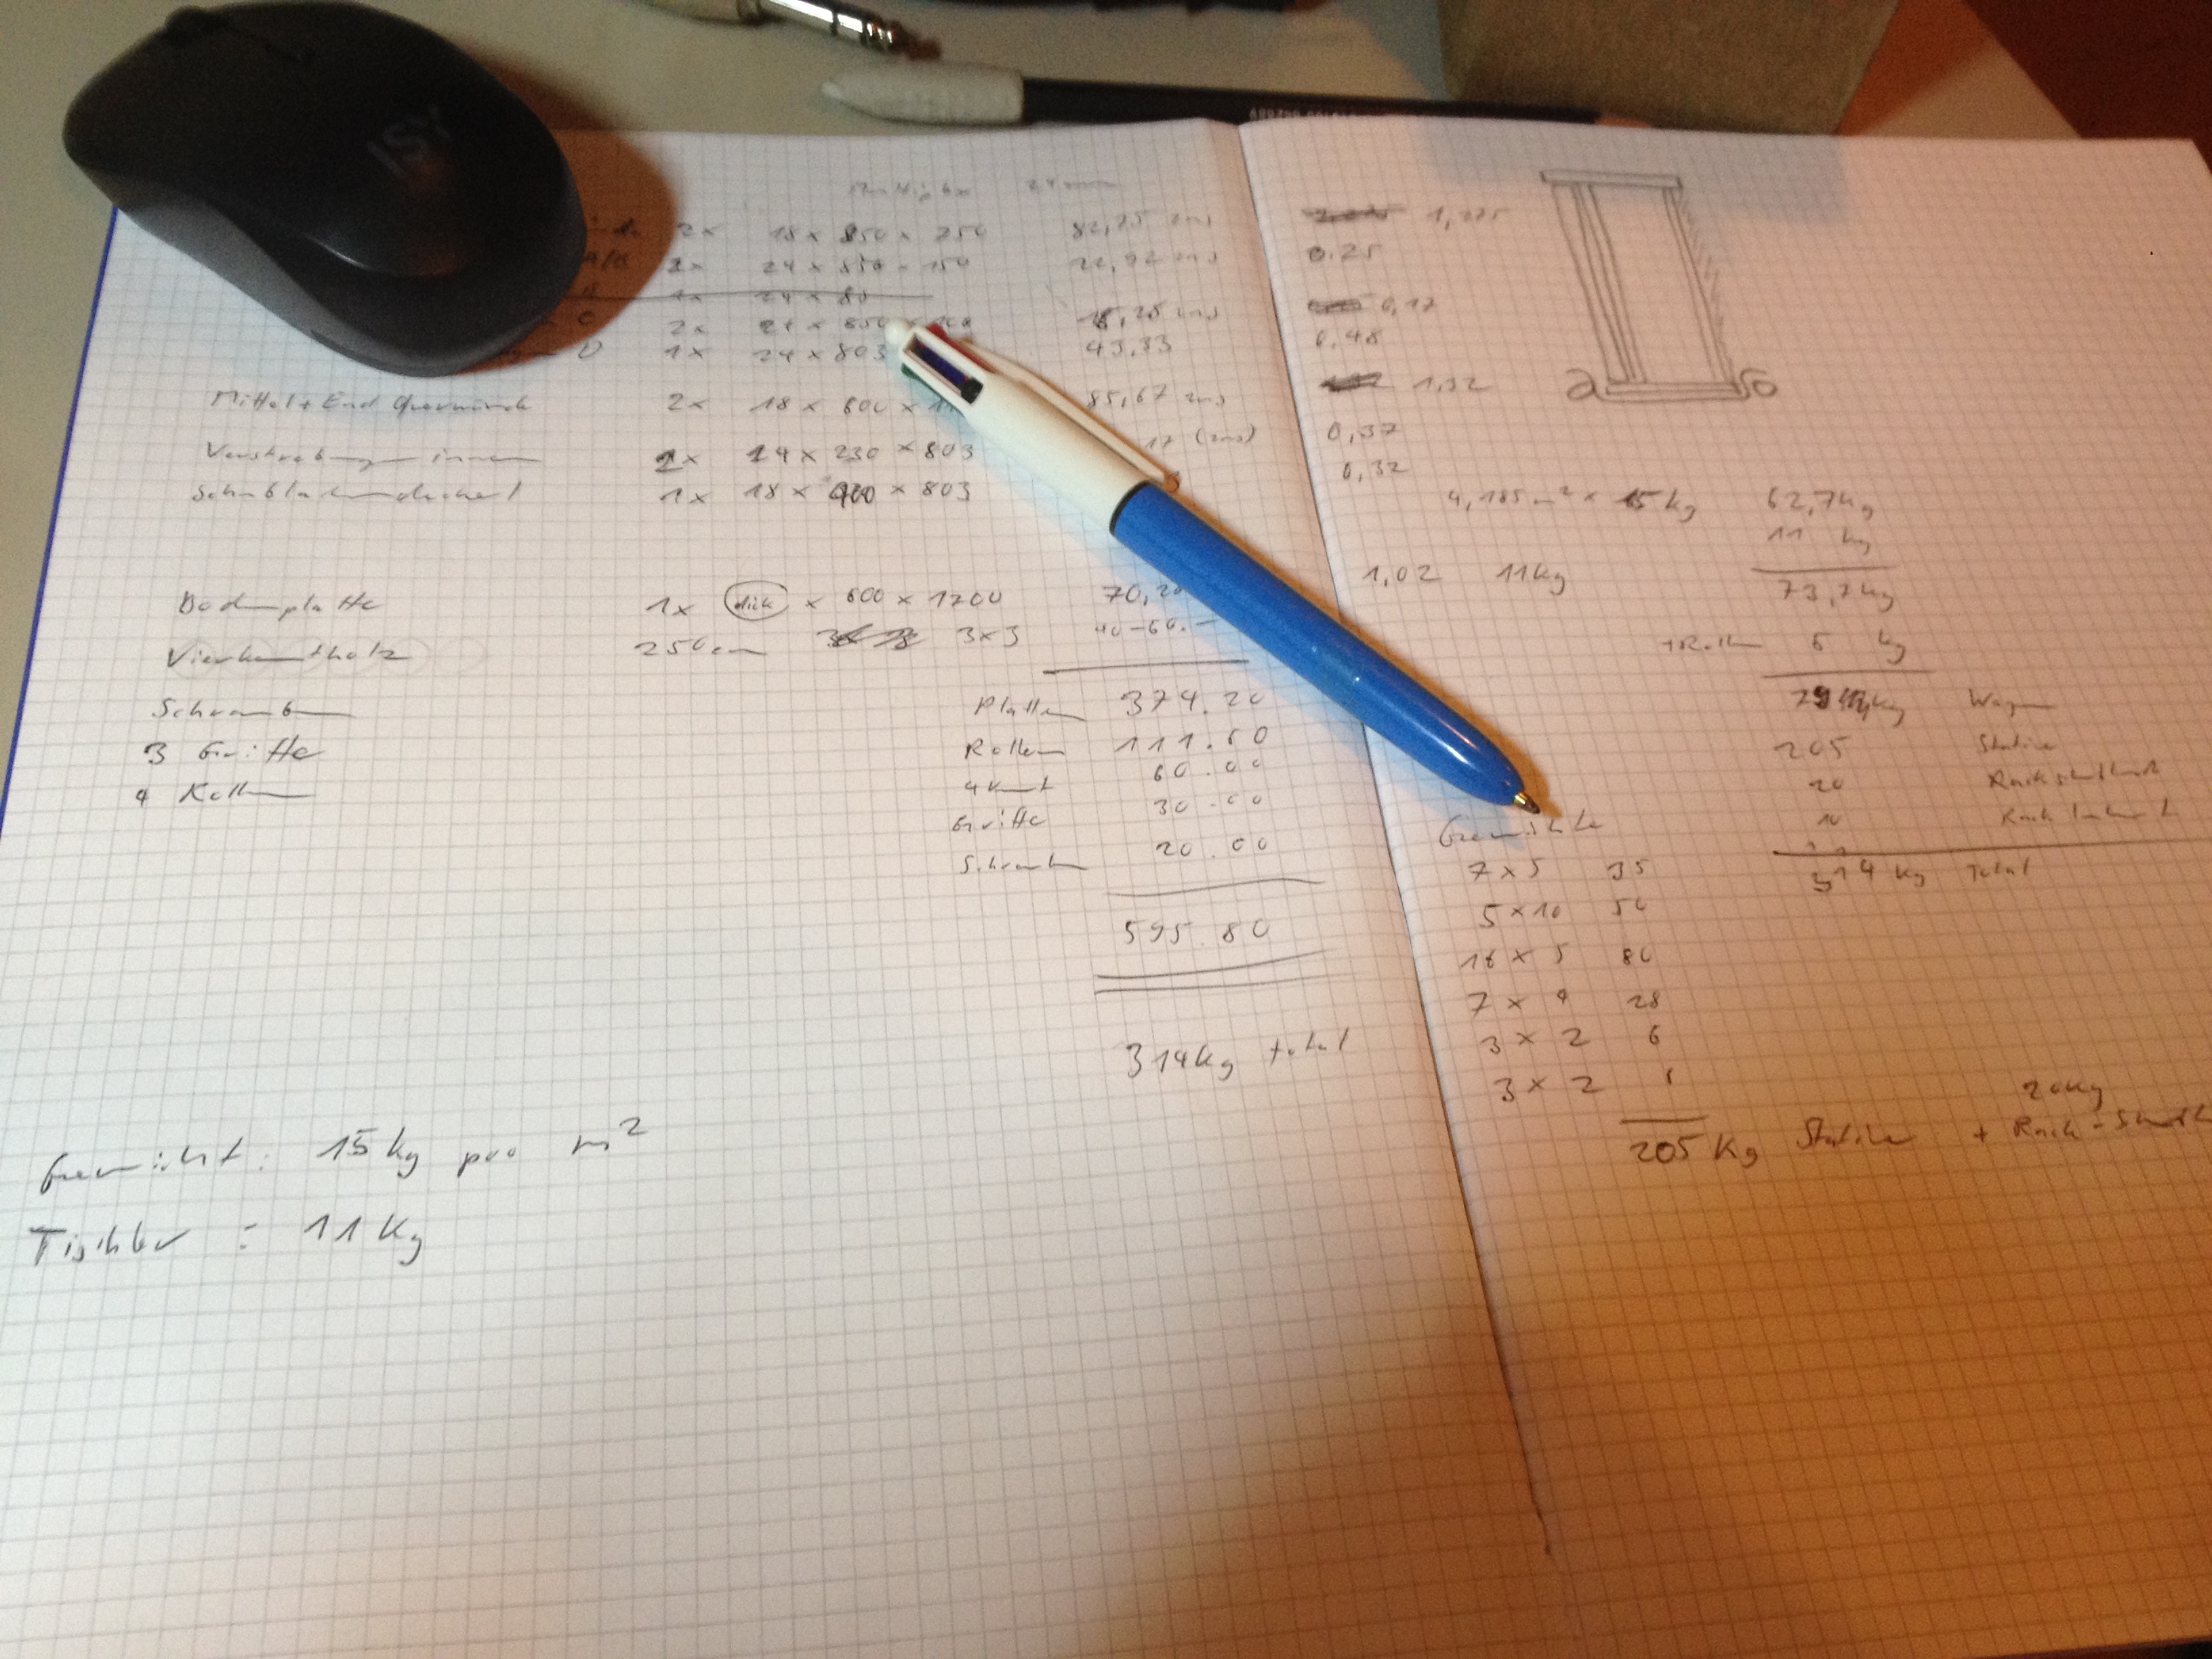 ISY
Multiplex 24mm
2x 18 x 850 x 750 82,75 zus
2x 24 x 850 x 150 22,92 zus
1x 24 x 80
2x 24 x 850 x 108 18,25 zus
D 1x 24 x 803 43,33
Mittel + End Querwände 2x 18 x 600 x 85,67 zus
Verstrebung innen 2x 24 x 230 x 803 17 (zus)
Schubladendeckel 1x 18 x 400 x 803
Bodenplatte 1x dick x 600 x 1700 70,20
Vierkantholz 250cm 3x3 40-60.-
Schrauben
3 Griffe
4 Rollen
Platten 374.20
Rollen 111.60
4kant 60.00
Griffe 30.00
Schrauben 20.00
595.80
314kg total
Gewicht: 15kg pro m²
Tischler : 11Kg
1,275
0.25
0,17
0,48
1,32
0,37
0,32
4,185m² x 15kg 62,7kg
11 kg
1,02 11kg 73,7kg
+ Rollen 5 kg
Wagen
205 Stative
20
10
314 kg Total
Gewichte
7 x 5 35
5 x 10 50
16 x 5 80
7 x 4 28
3 x 2 6
3 x 2
20kg
205 Kg Stative + Rack-